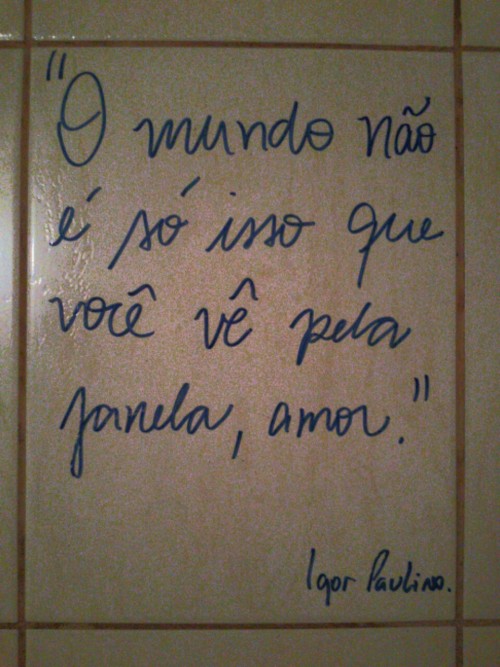 "O mundo não
é só isso que
você vê pela
janela, amor."
Igor Paulino.